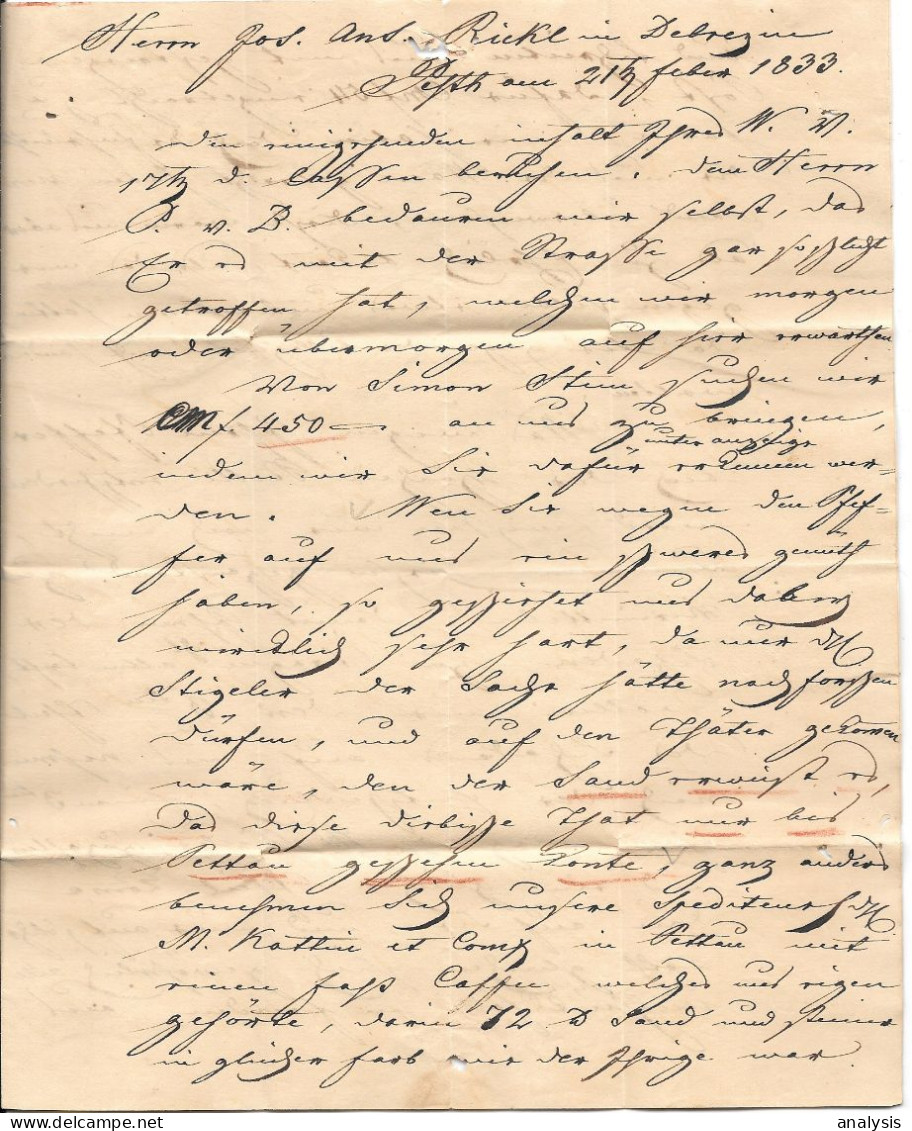 Herrn Jos. Ant. Rickl in Debrezin
Pesth am 21t feber 1833.
Den eingesenden inhalt Ihres W. V.
17t d. lassen beruhen. Dem Herrn
P. v. B. bedauren wir selbst, das
Er es mit der Strasse gar so schlecht
getroffen hat, welchen wir morgen
oder übermorgen auf hier erwarthen
Von Simon Stein suchen wir
CMf 450 — an uns zu bringen,
unter anzeige
indem wir Sie dafür erkennen wer=
den. Wen Sie wegen den Pfef=
fer auf uns ein schweres gemüth
haben, so geschiehet uns dabey
wircklich sehr hart, da nur die H
Stigeler der Sache hätte nachforschen
dürfen, und auf den Thäter gekomen
wäre, den der Sand erweist es,
das diese diebische That nur bis
Pettau geschehen konte, ganz anders
benehmen sich unsere Spediteurs die H
M. Kattin et Comp in Pettau mit
einen faß Caffee welches uns eigen
gehörte, darin 72 ℔ Sand und steiner
in gleicher farb wie der Ihrige war
analysis